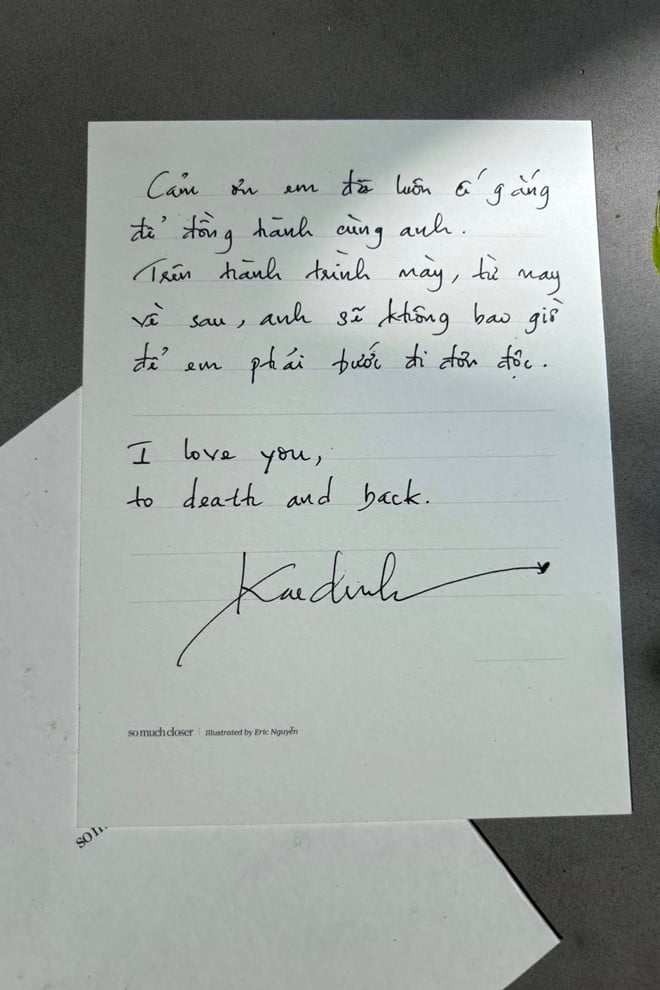 Cảm ơn em đã luôn cố gắng
để đồng hành cùng anh.
Trên hành trình này, từ nay
về sau, anh sẽ không bao giờ
để em phải bước đi đơn độc.
I love you,
to death and back.
Kaedinh
so much closer | Illustrated by Eric Nguyễn
so m